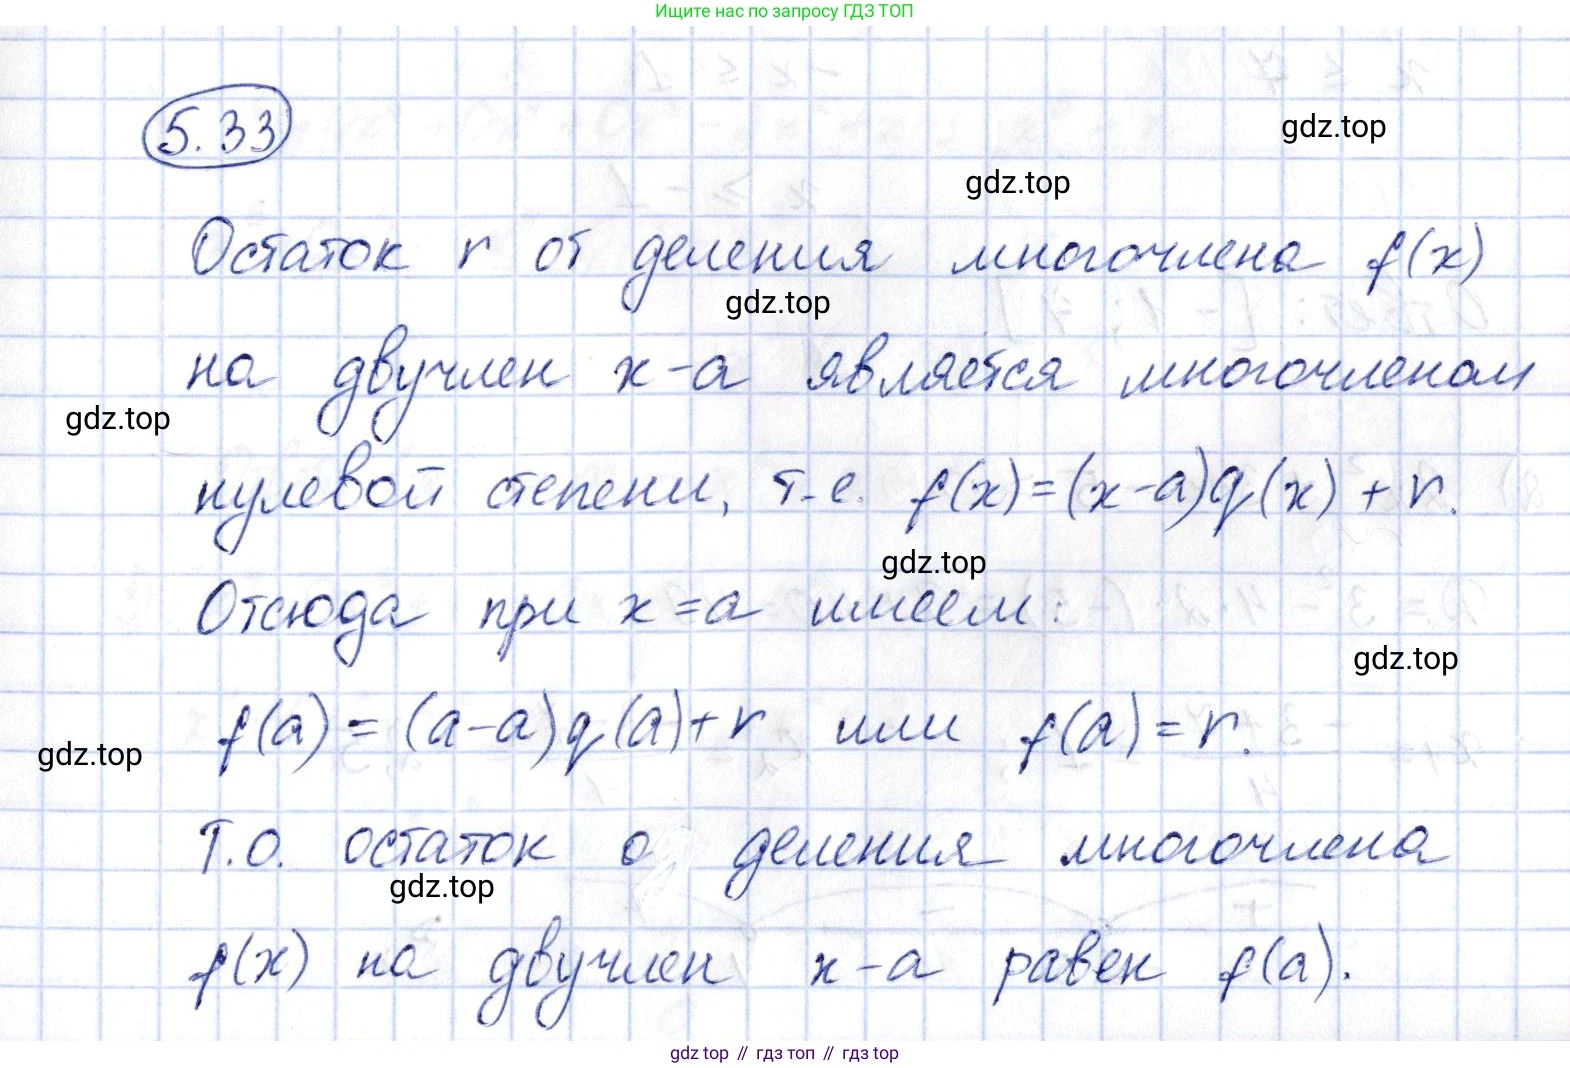 Ищите нас по запросу ГДЗ ТОП
5.33
gdz.top
gdz.top
Остаток r от деления многочлена f(x)
gdz.top
на двучлен x-a является многочленом
gdz.top
нулевой степени, т.е. f(x)=(x-a)q(x)+r.
gdz.top
Отсюда при x=a имеем:
gdz.top
f(a)=(a-a)q(a)+r или f(a)=r.
gdz.top
Т.О. остаток о деления многочлена
gdz.top
f(x) на двучлен x-a равен f(a).
gdz top // гдз топ // гдз top